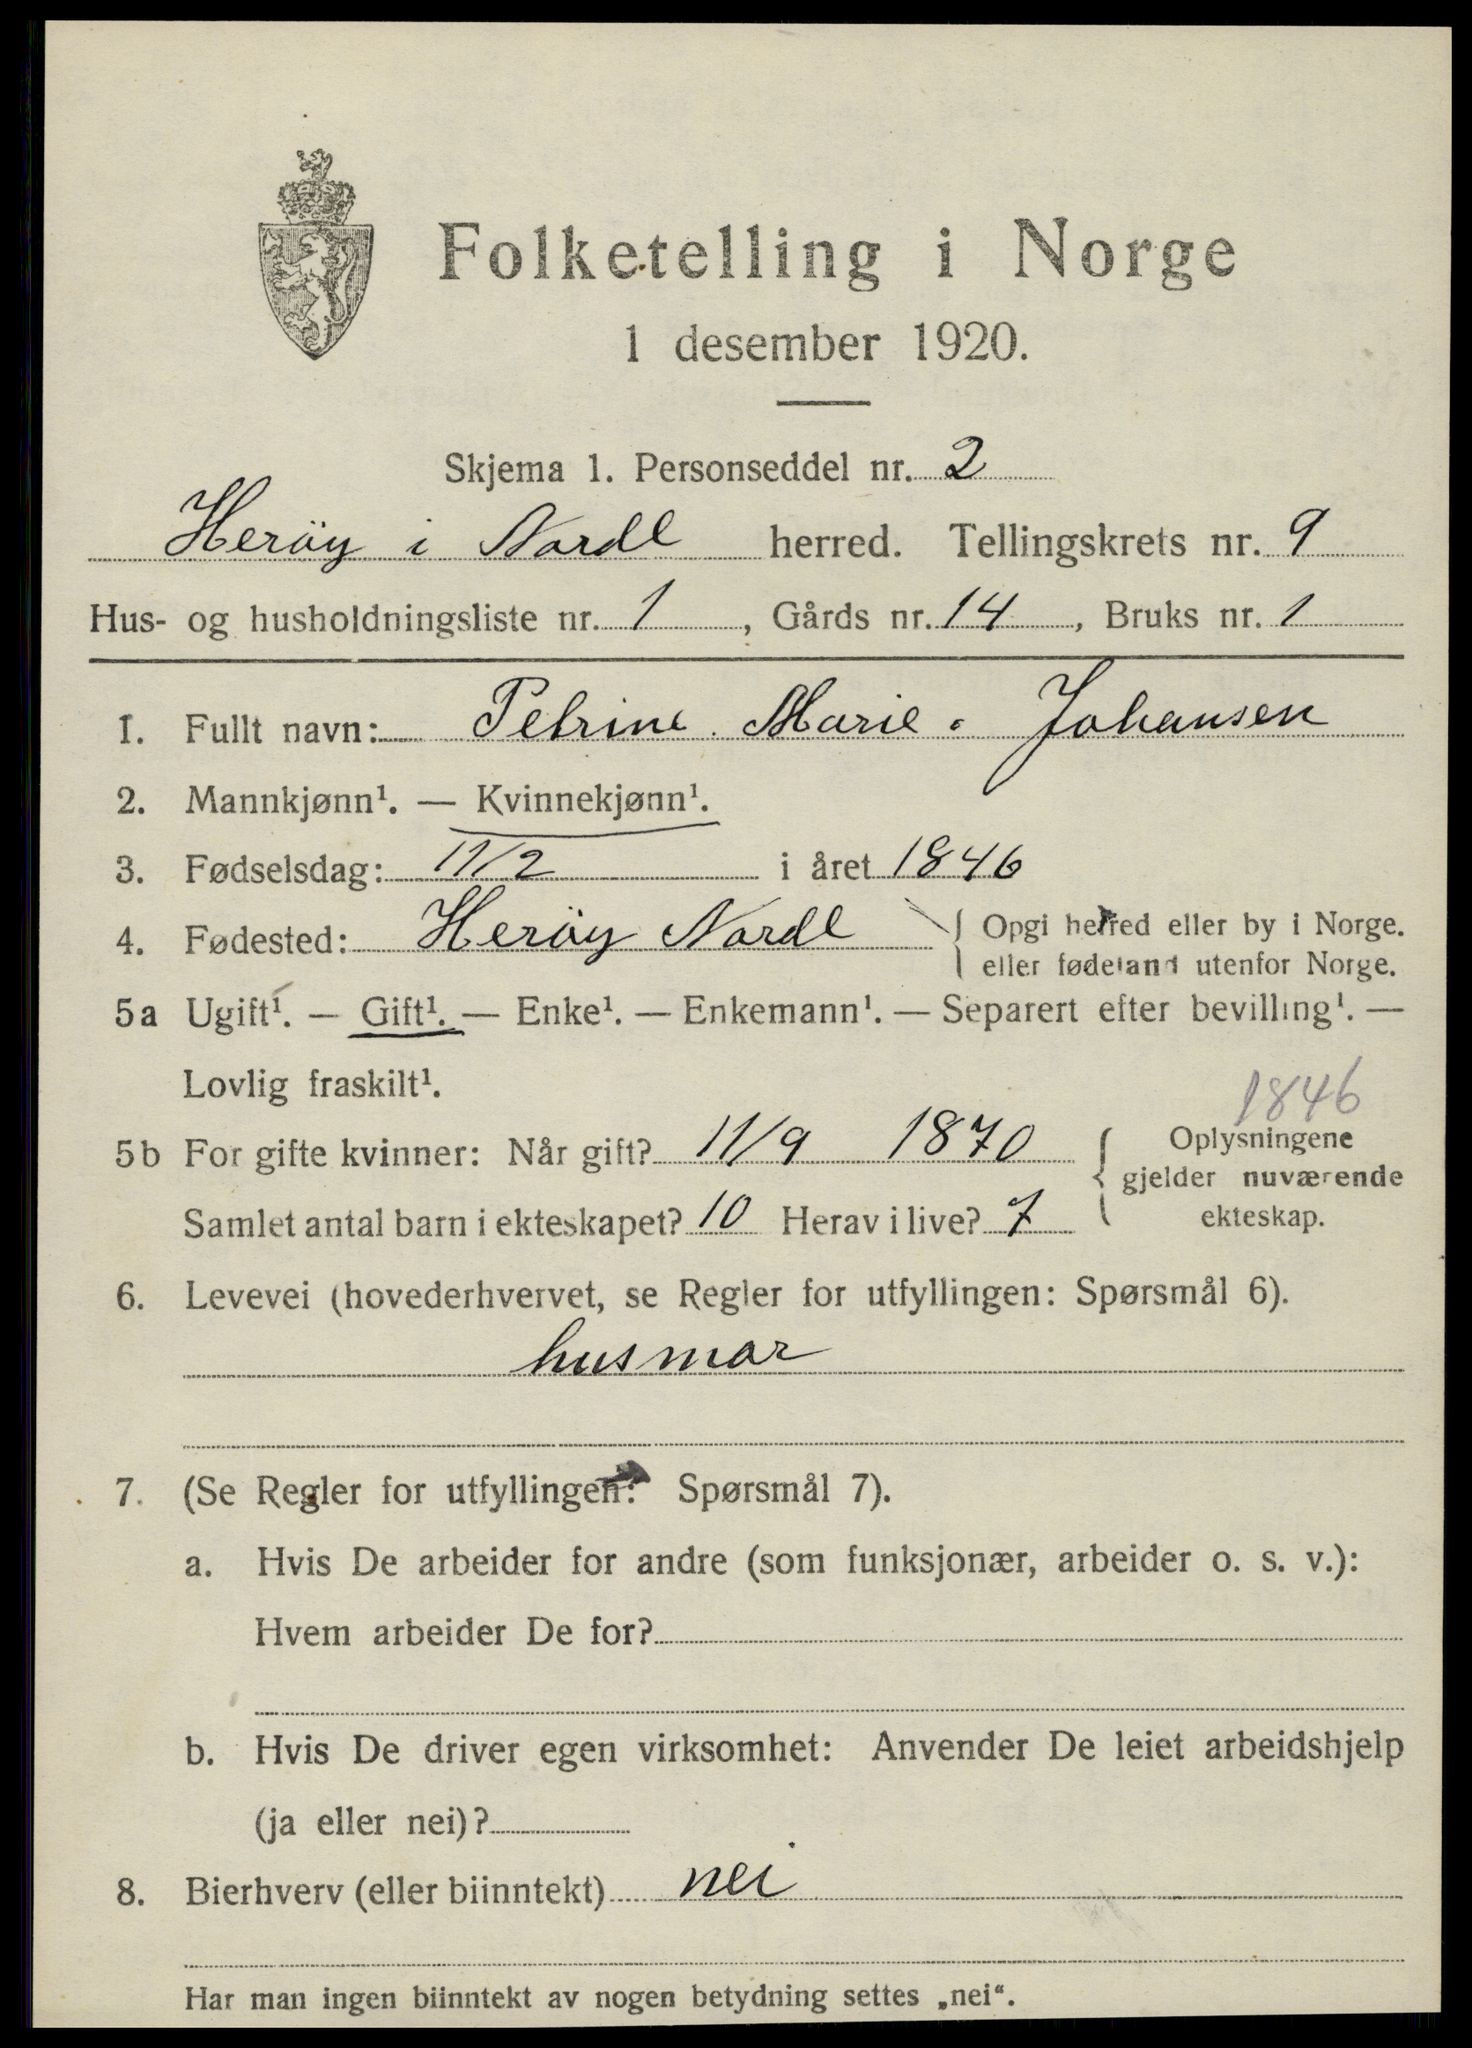 Folketelling i Norge
1 desember 1920.
Skjema 1. Personseddel nr. 2
Herøy i Nordl herred. Tellingskrets nr. 9
Hus- og husholdningsliste nr. 1, Gårds nr. 14, Bruks nr. 1
1. Fullt navn: Petrine Marie Johansen
2. Mannkjønn¹. — Kvinnekjønn¹.
3. Fødselsdag: 11/2 i året 1846
4. Fødested: Herøy Nordl { Opgi herred eller by i Norge.
eller fødeland utenfor Norge.
5a Ugift¹. — Gift¹. — Enke¹. — Enkemann¹. — Separert efter bevilling¹. —
Lovlig fraskilt¹.
1846
5b For gifte kvinner: Når gift? 11/9 1870 { Oplysningene
gjelder nuværende
ekteskap.
Samlet antal barn i ekteskapet? 10 Herav i live? 7
6. Levevei (hovederhvervet, se Regler for utfyllingen: Spørsmål 6).
husmor
7. (Se Regler for utfyllingen: Spørsmål 7).
a. Hvis De arbeider for andre (som funksjonær, arbeider o. s. v.):
Hvem arbeider De for?
b. Hvis De driver egen virksomhet: Anvender De leiet arbeidshjelp
(ja eller nei)?
8. Bierhverv (eller biinntekt) nei
Har man ingen biinntekt av nogen betydning settes „nei“.